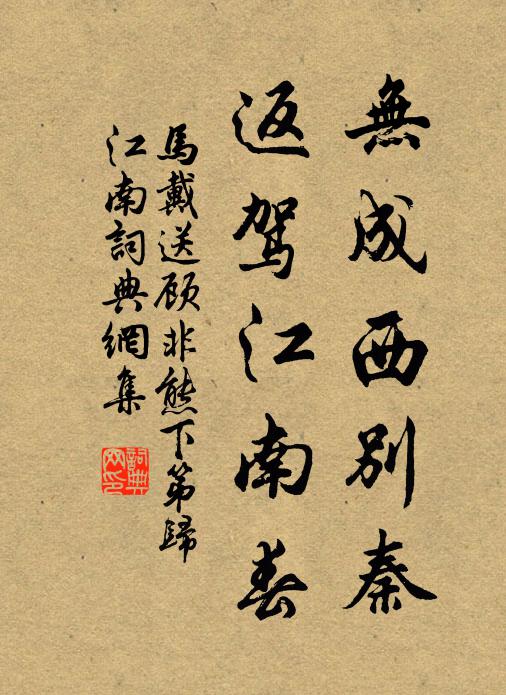 無成西別秦
返駕江南春
馬戴送顾非熊下第歸
江南詞典網集
詞典网印